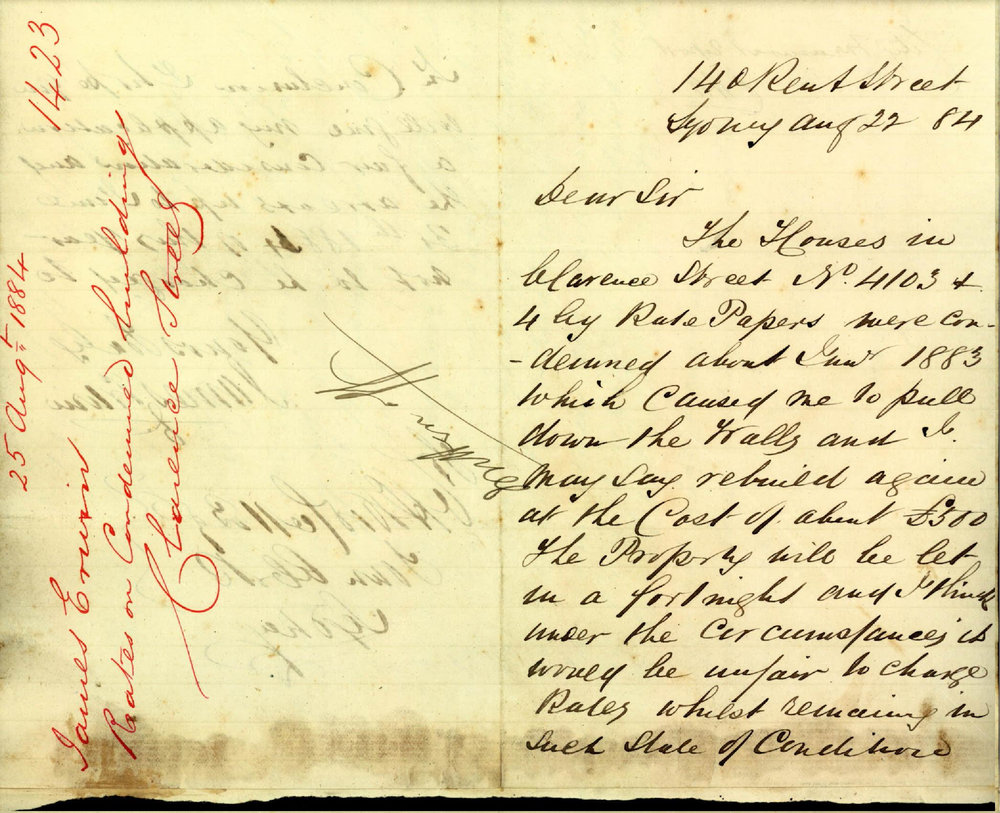 1423
25 Augt 1884
James Erwin
Rates on Condemned buildings
Clarence Street
140 Kent Street
Sydney Aug 22 84
Dear Sir
The Houses in
Clarence Street No. 4103 &
4 by Rate Papers were con-
-demned about Jany 1883
which caused me to pull
down the Walls and I
may say rebuild again
at the Cost of about £500
The Property will be let
in a fortnight and I think
under the circumstances it
would be unfair to charge
Rates whilst remaining in
such State of Condition